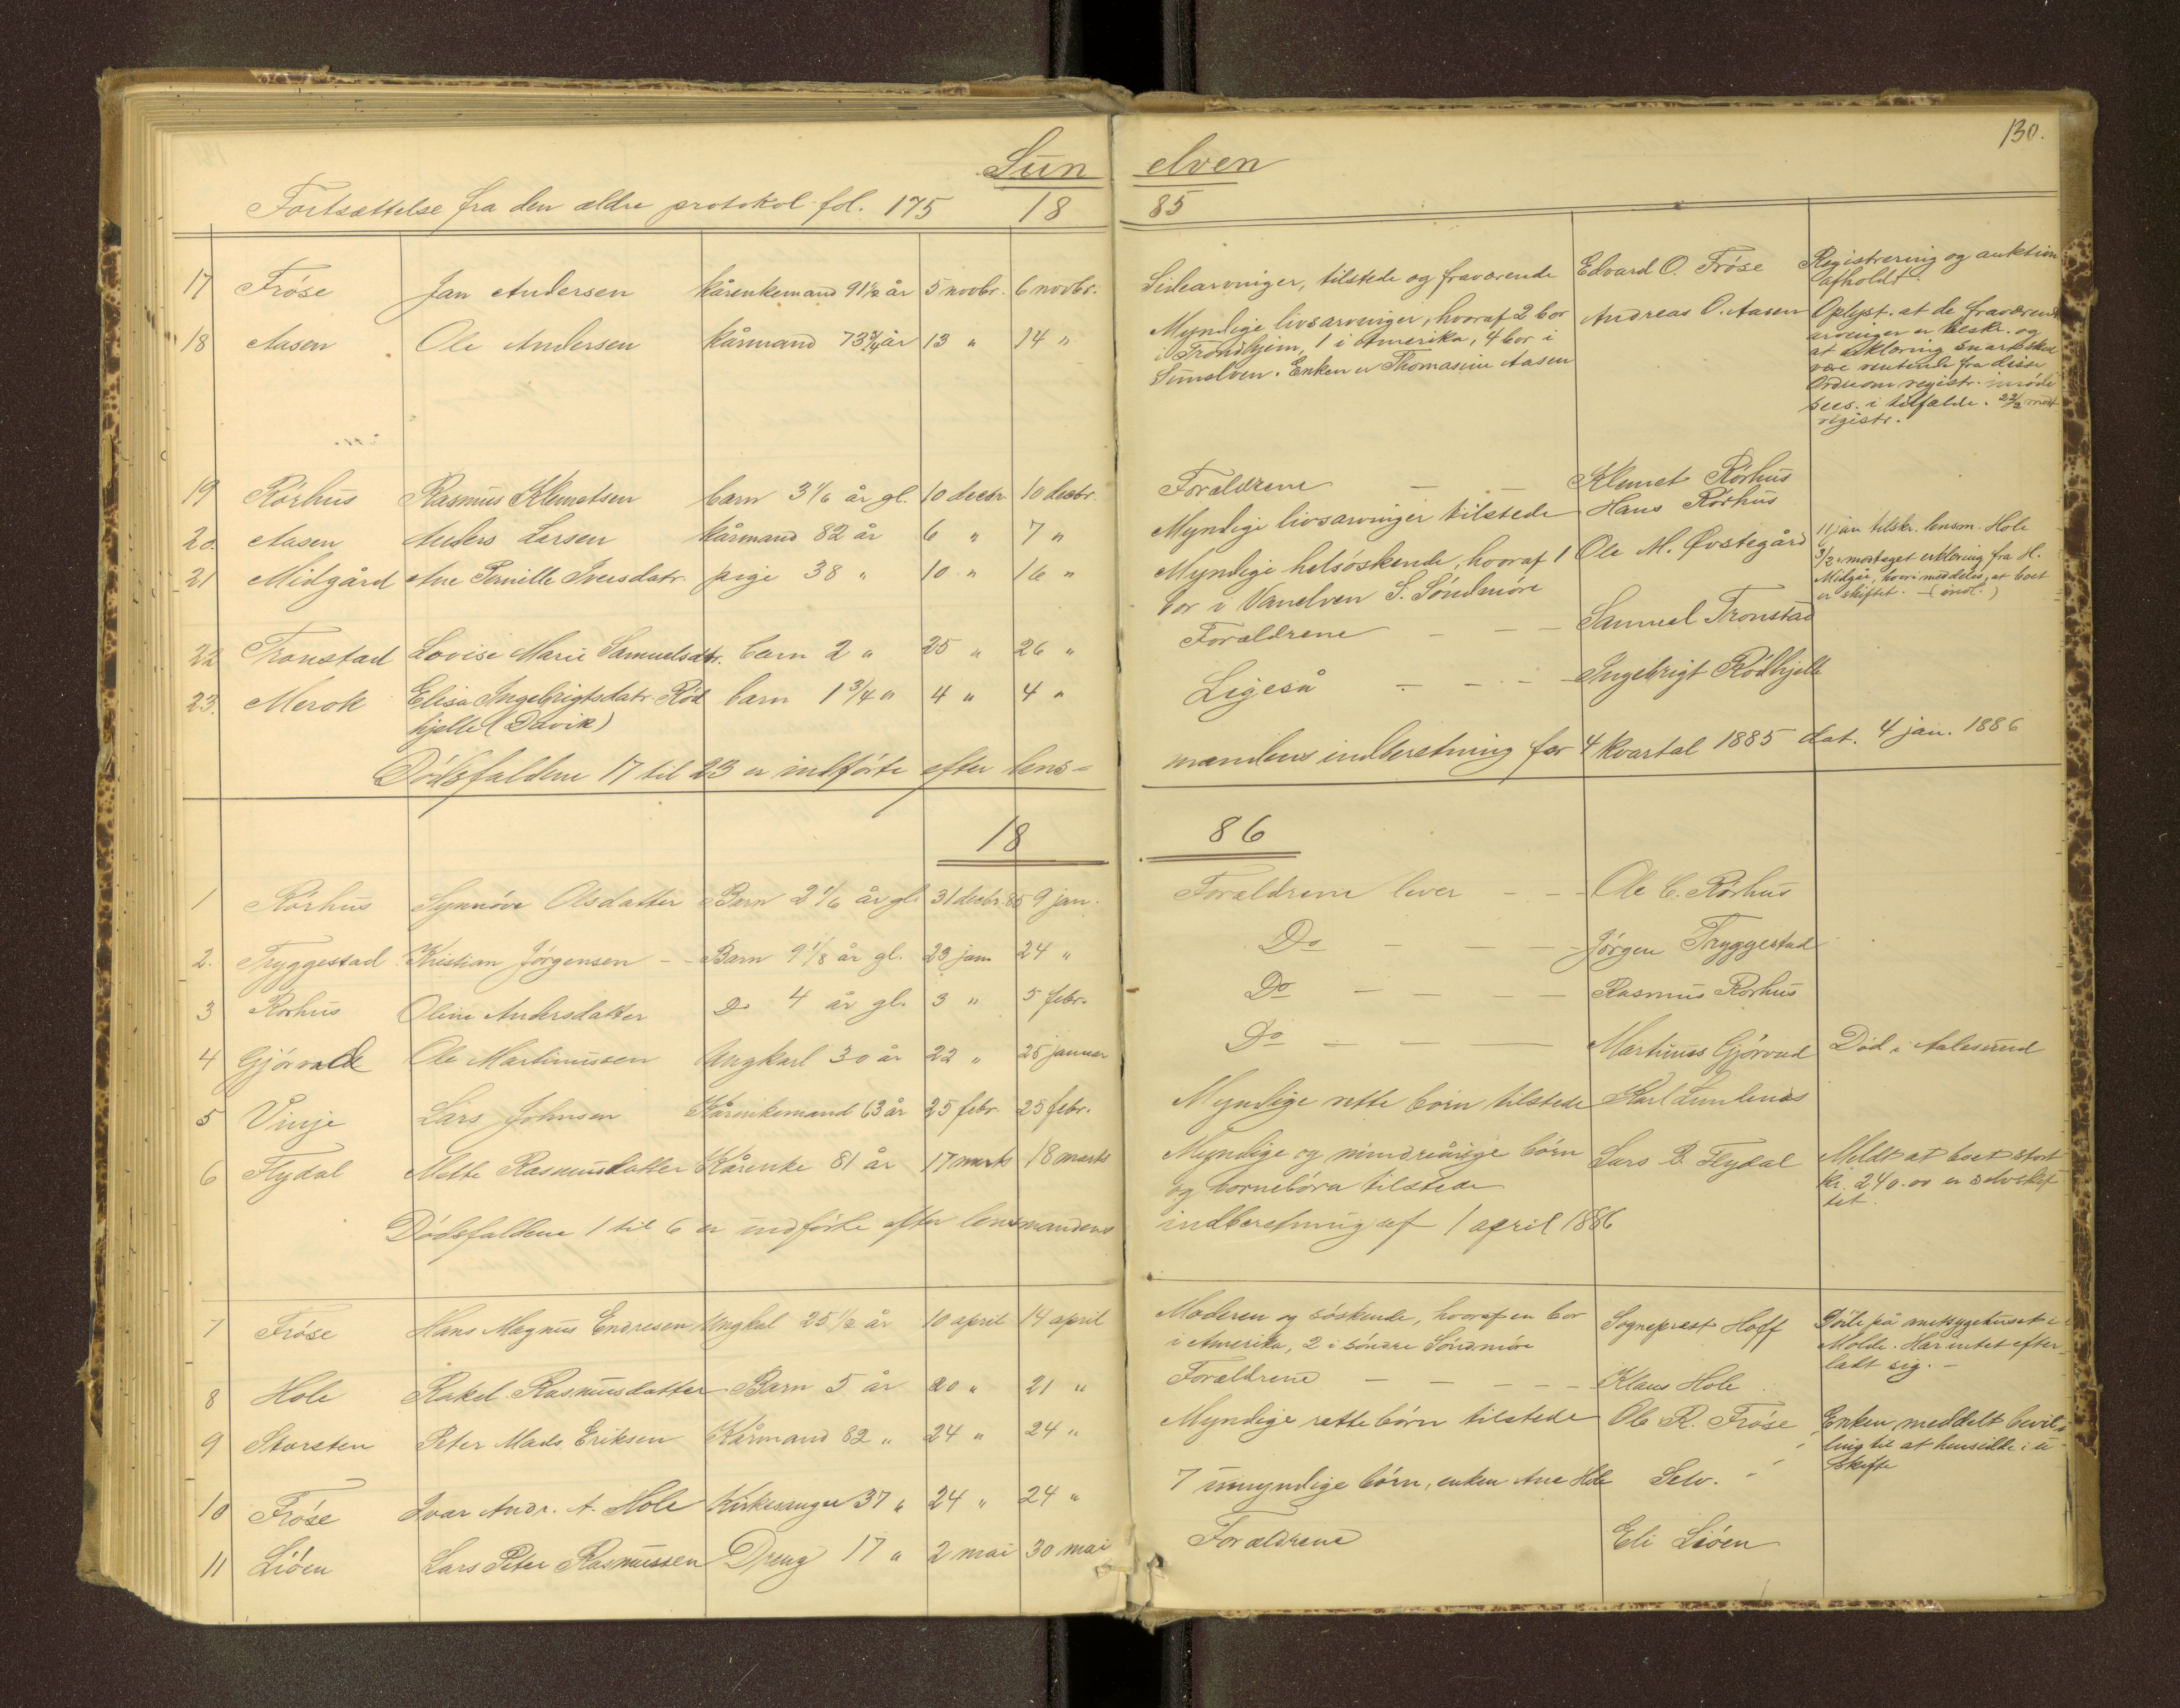 130.
Sunelven
Fortsættelse fra den ældre protokol fol. 175 1885
17 Frøse Jan Andersen kårenkemand 91½ år 5 novbr. 6 novbr. Sidearvinger, tilstede og fraværende Edvard O. Frøse Registrering og auktion
afholdt.
18 Aasen Ole Andersen kårmand 73¾ år 13 " 14 " Myndige livsarvinger, hvoraf 2 bor Andreas O. Aasen Oplyst. at de fraværende
i Trondhjem, 1 i Amerika, 4 bor i arvinger er beskr. og
Sunelven. Enken er Thomasine Aasen at erklæring snart skal
være ventende fra disse
Ordre om registr. imøde
sees. i tilfælde. 23/2 modt
registr.
19 Rørhus Rasmus Klemetsen barn 3 1/6 år gl. 10 decbr 10 decbr. Forældrene — — Klemet Rørhus
20. Aasen Anders Larsen kårmand 82 år 6 " 7 " Myndige livsarvinger tilstede Hans Rørhus
21 Midgård Ane Pernille Iversdatr. pige 38 " 10 " 16 " Myndige helsøskende, hvoraf 1 Ole M. Øvstegård 11 jan tilskr. lensm. Hole
bor i Vanelven S. Søndmøre 3/2 modtaget erklæring fra M.
Midgår, hvori meddeles, at boet
er skiftet. —
22 Tronstad Lovise Marie Samuelsdtr. barn 2 " 25 " 26 " Forældrene — — — Samuel Tronstad
23. Merok Elisa Ingebrigtsdatr. Rød barn 1¾ " 4 " 4 " Ligeså — — — Ingebrigt Rødhjelle
hjelle (Davik)
Dødsfaldene 17 til 23 er indførte efter lensmandens indberetning for 4 kvartal 1885 dat. 4 jan. 1886
1886
1 Rørhus Synnøve Olsdatter Barn 2 1/6 år gl. 31 decbr. 85 9 jan. Forældrene lever — — Ole C. Rørhus
2. Tryggestad Kristian Jørgensen — Barn 9 1/8 år gl. 23 jan 24 " Do — — — Jørgen Tryggestad
3 Rørhus Oline Andersdatter Do 4 år gl. 3 " 5 febr. Do — — — — Rasmus Rørhus
4 Gjørvald Ole Martinussen Ungkarl 30 år 22 " 25 januar Do — — — — Martinus Gjørvad Død i Aalesund
5 Vinje Lars Johnsen Kårenkemand 63 år 25 febr. 25 febr. Myndige rette børn tilstede Karl
6 Flydal Mette Rasmusdatter Kårenke 81 år 17 marts 18 marts Myndige og mindreårige børn Lars B. Flydal Meldt at boet stort
og børnebørn tilstede kr. 240.00 er selvskif
tet.
Dødsfaldene 1 til 6 er indførte efter lensmandens indberetning af 1 april 1886
7 Frøse Hans Magnus Endresen Ungkal 25½ år 10 april 14 april Moderen og søskende, hvoraf en bor Sogneprest Hoff Døde på amtssygehuset i
i Amerika, 2 i søndre Søndmøre Molde. Har intet efter-
ladt sig. —
8 Hole Rakel Rasmusdatter Barn 5 år 20 " 21 " Forældrene — — — — Klaus Hole
9 Storsten Peter Mads Eriksen Kårmand 82 " 24 " 24 " Myndige rette børn tilstede Ole R. Frøse Enken meddelt bevil-
ling til at hensidde i u
skifte
10 Frøse Ivar Andr. A. Hole Kirkesanger 37 " 24 " 24 " 7 umyndige børn, enken Ane Hole Selv.
11 Liøen Lars Peter Rasmussen Dreng 17 " 2 mai 30 mai Forældrene Eli Liøen